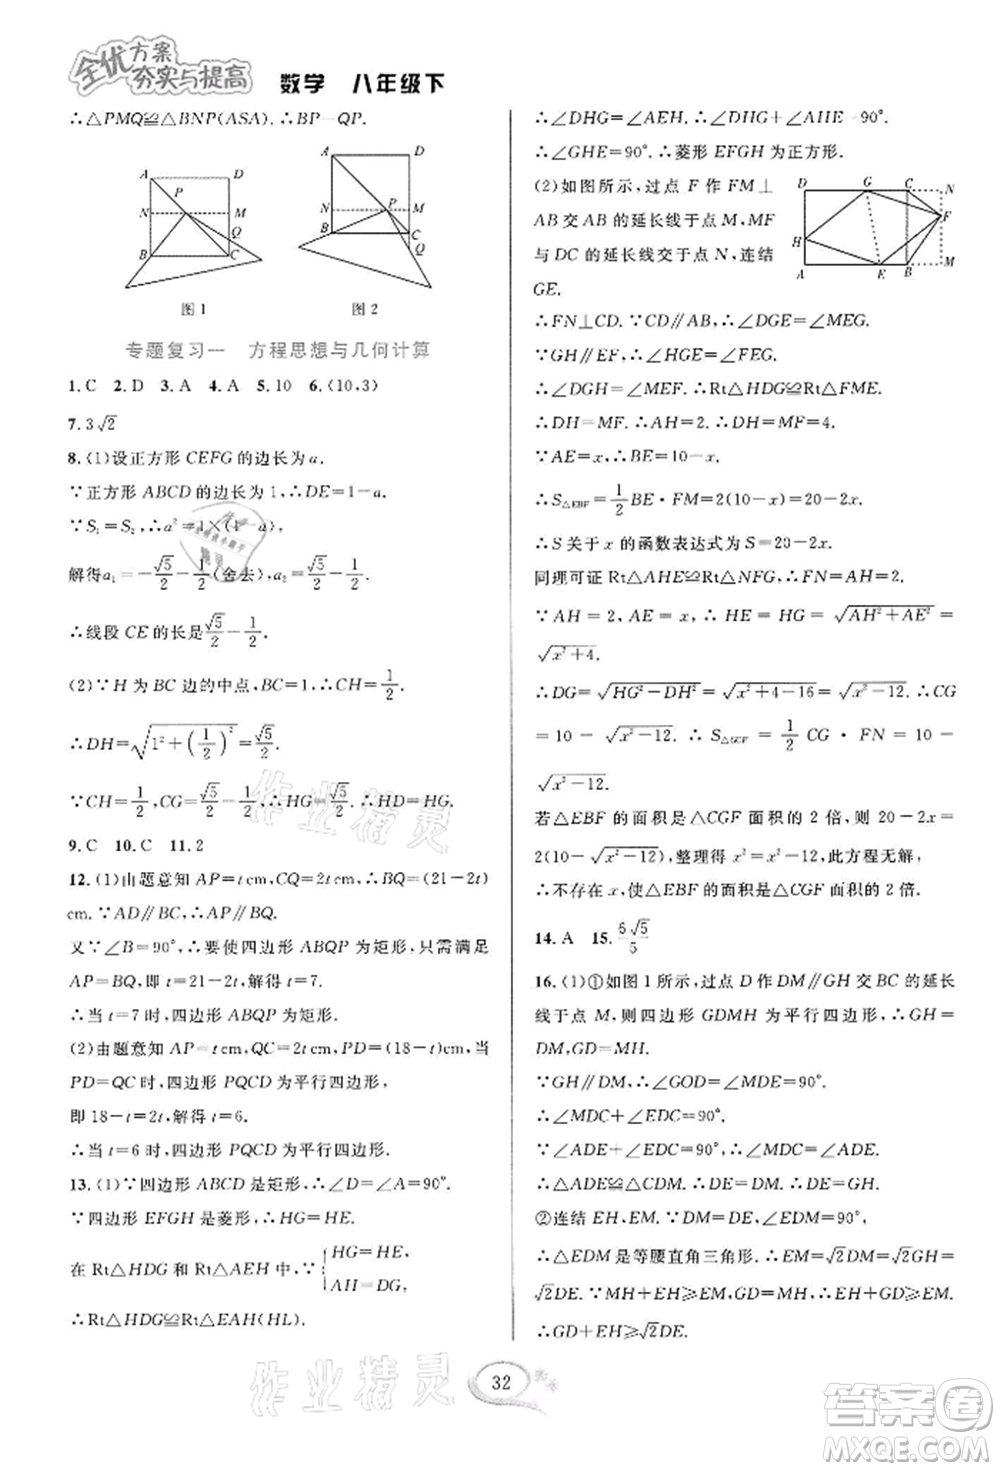 全优方案
夯实与提高
数学 八年级下
∴△PMQ≌△BNP(ASA). ∴BP=QP.
A D P N M Q B C
图1
A D N P M B C Q
图2
专题复习一 方程思想与几何计算
1.C 2.D 3.A 4.A 5.10 6.(10,3)
7.3√2
8.(1)设正方形CEFG的边长为a.
∵正方形ABCD的边长为1,∴DE=1-a.
∵S₁=S₂,∴a²=1×(1-a),
解得a₁=-√5/2-1/2(舍去),a₂=√5/2-1/2.
∴线段CE的长是√5/2-1/2.
(2)∵H为BC边的中点,BC=1,∴CH=1/2.
∴DH=√(1²+(1/2)²)=√5/2.
∵CH=1/2,CG=√5/2-1/2,∴HG=√5/2.∴HD=HG.
9.C 10.C 11.2
12.(1)由题意知AP=t cm,CQ=2t cm,∴BQ=(21-2t)
cm.∵AD∥BC,∴AP∥BQ.
又∵∠B=90°,∴要使四边形ABQP为矩形,只需满足
AP=BQ,即t=21-2t,解得t=7.
∴当t=7时,四边形ABQP为矩形.
(2)由题意知AP=t cm,QC=2t cm,PD=(18-t)cm,当
PD=QC时,四边形PQCD为平行四边形,
即18-t=2t,解得t=6.
∴当t=6时,四边形PQCD为平行四边形.
13.(1)∵四边形ABCD是矩形,∴∠D=∠A=90°.
∵四边形EFGH是菱形,∴HG=HE.
在Rt△HDG和Rt△AEH中,∵{HG=HE,
AH=DG,
∴Rt△HDG≌Rt△EAH(HL).
∴∠DHG=∠AEH.∴∠DHG+∠AHE=90°.
∴∠GHE=90°.∴菱形EFGH为正方形.
(2)如图所示,过点F作FM⊥
AB交AB的延长线于点M,MF
与DC的延长线交于点N,连结
GE.
D G C N F H A E B M
∴FN⊥CD.∵CD∥AB,∴∠DGE=∠MEG.
∵GH∥EF,∴∠HGE=∠FEG.
∴∠DGH=∠MEF.∴Rt△HDG≌Rt△FME.
∴DH=MF.∵AH=2,∴DH=MF=4.
∵AE=x,∴BE=10-x.
∴S△EBF=1/2 BE·FM=2(10-x)=20-2x.
∴S关于x的函数表达式为S=20-2x.
同理可证Rt△AHE≌Rt△NFG,∴FN=AH=2.
∵AH=2,AE=x,∴HE=HG=√(AH²+AE²)=
√(x²+4).
∴DG=√(HG²-DH²)=√(x²+4-16)=√(x²-12).∴CG
=10-√(x²-12).∴S△GCF=1/2 CG·FN=10-
√(x²-12).
若△EBF的面积是△CGF面积的2倍,则20-2x=
2(10-√(x²-12)),整理得x²=x²-12,此方程无解,
∴不存在x,使△EBF的面积是△CGF面积的2倍.
14.A 15.6√5/5
16.(1)①如图1所示,过点D作DM∥GH交BC的延长
线于点M,则四边形GDMH为平行四边形,∴GH=
DM,GD=MH.
∵GH∥DM,∴∠GOD=∠MDE=90°.
∴∠MDC+∠EDC=90°.
∵∠ADE+∠EDC=90°,∴∠MDC=∠ADE.
∴△ADE≌△CDM.∴DE=DM.∴GH=DE.
②连结EH,EM.∵DM=DE,∠EDM=90°,
∴△EDM是等腰直角三角形.∴EM=√2DM=
√2DE.∵MH+EH≥EM,GH=DE,∴GD+EH≥EM.
∴GD+EH≥√2DE.
作业精灵
作业精灵
32
答案卷
MXQE.COM